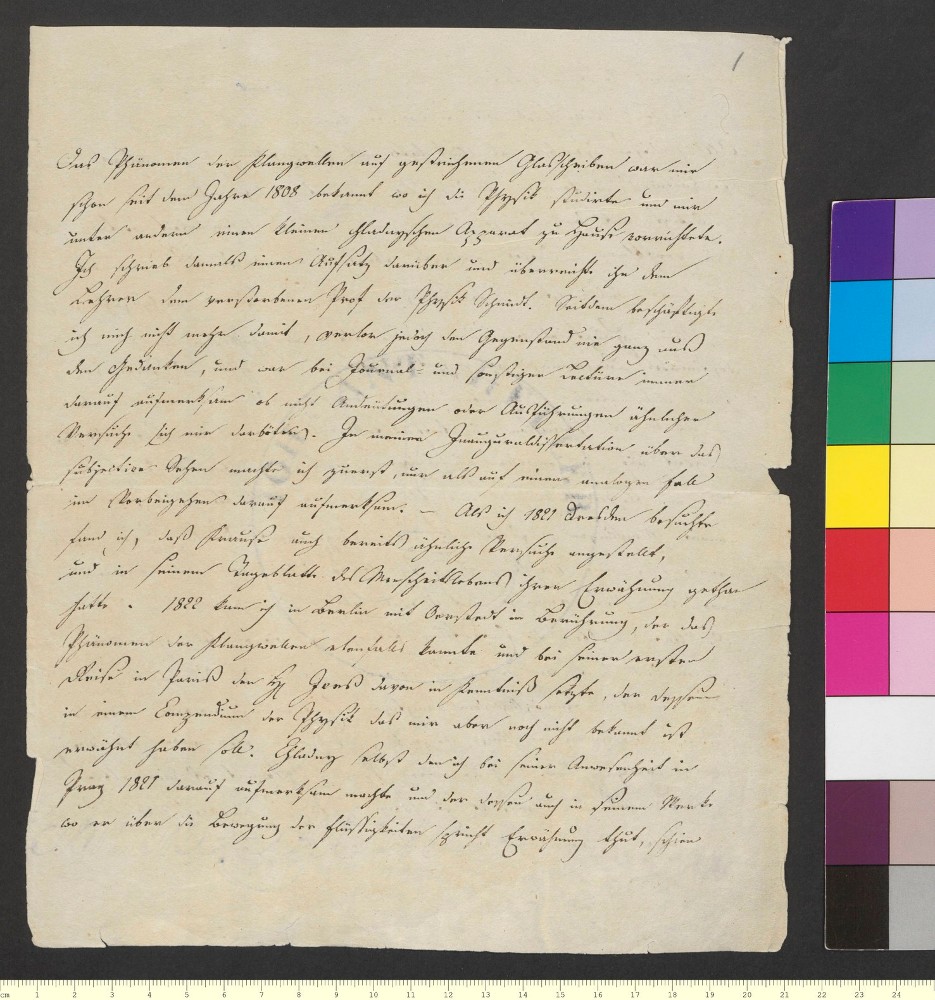 1
Das Phänomen der Klangwellen auf gestrichenen Glasscheiben war mir
schon seit dem Jahre 1808 bekannt wo ich die Physik studirte und mir
unter andern einen kleinen Chladnyschen Apparat zu Hause vorrichtete.
Ich schrieb damals einen Aufsatz darüber und überreichte ihn dem
Lehrer dem verstorbenen Prof der Physik Schmidt. Seitdem beschäftigte
ich mich nicht mehr damit, verlor jedoch den Gegenstand nie ganz aus
den Gedanken, und war bei Journal- und sonstiger Lectüre immer
darauf aufmerksam ob nicht Andeutungen oder Ausführungen ähnlicher
Versuche sich mir darböten. In meiner Inauguraldissertation über das
subjective Sehen machte ich zuerst, nur als auf einen analogen Fall
im Vorbeigehen darauf aufmerksam. – Als ich 1821 Dresden besuchte
fand ich, daß Krause auch bereits ähnliche Versuche angestellt,
und in seinem Tageblatte des Menschheitslebens ihrer Erwähnung gethan
hatte. 1822 kam ich in Berlin mit Oerstedt in Berührung, der das
Phänomen der Klangwellen ebenfalls kannte und bei seiner ersten
Reise in Paris den davon in Kenntniß setzte, der dessen
in einem Compendium der Physik das mir aber noch nicht bekannt ist
erwähnt haben soll. Chladny selbst den ich bei seiner Anwesenheit in
Prag 1821 darauf aufmerksam machte und der dessen auch in seinem Werke
wo er über die Bewegung der Flüssigkeiten spricht Erwähnung thut, schien